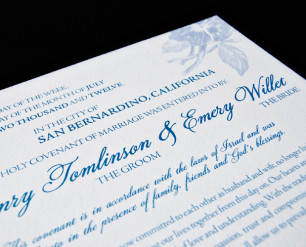 DAY OF THE WEEK.
DAY OF THE MONTH OF JULY
TWO THOUSAND and TWELVE
IN THE CITY OF
SAN BERNARDINO, CALIFORNIA
HOLY COVENANT OF MARRIAGE WAS ENTERED INTO BY
nry Tomlinson & Emery Willet
THE GROOM THE BRIDE
This covenant is in accordance with the laws of Israel and was
in the presence of family, friends and God's blessings.
committed to each other as husband and wife
our lives together from this day on. Our
of love and understanding. With the
trust, and